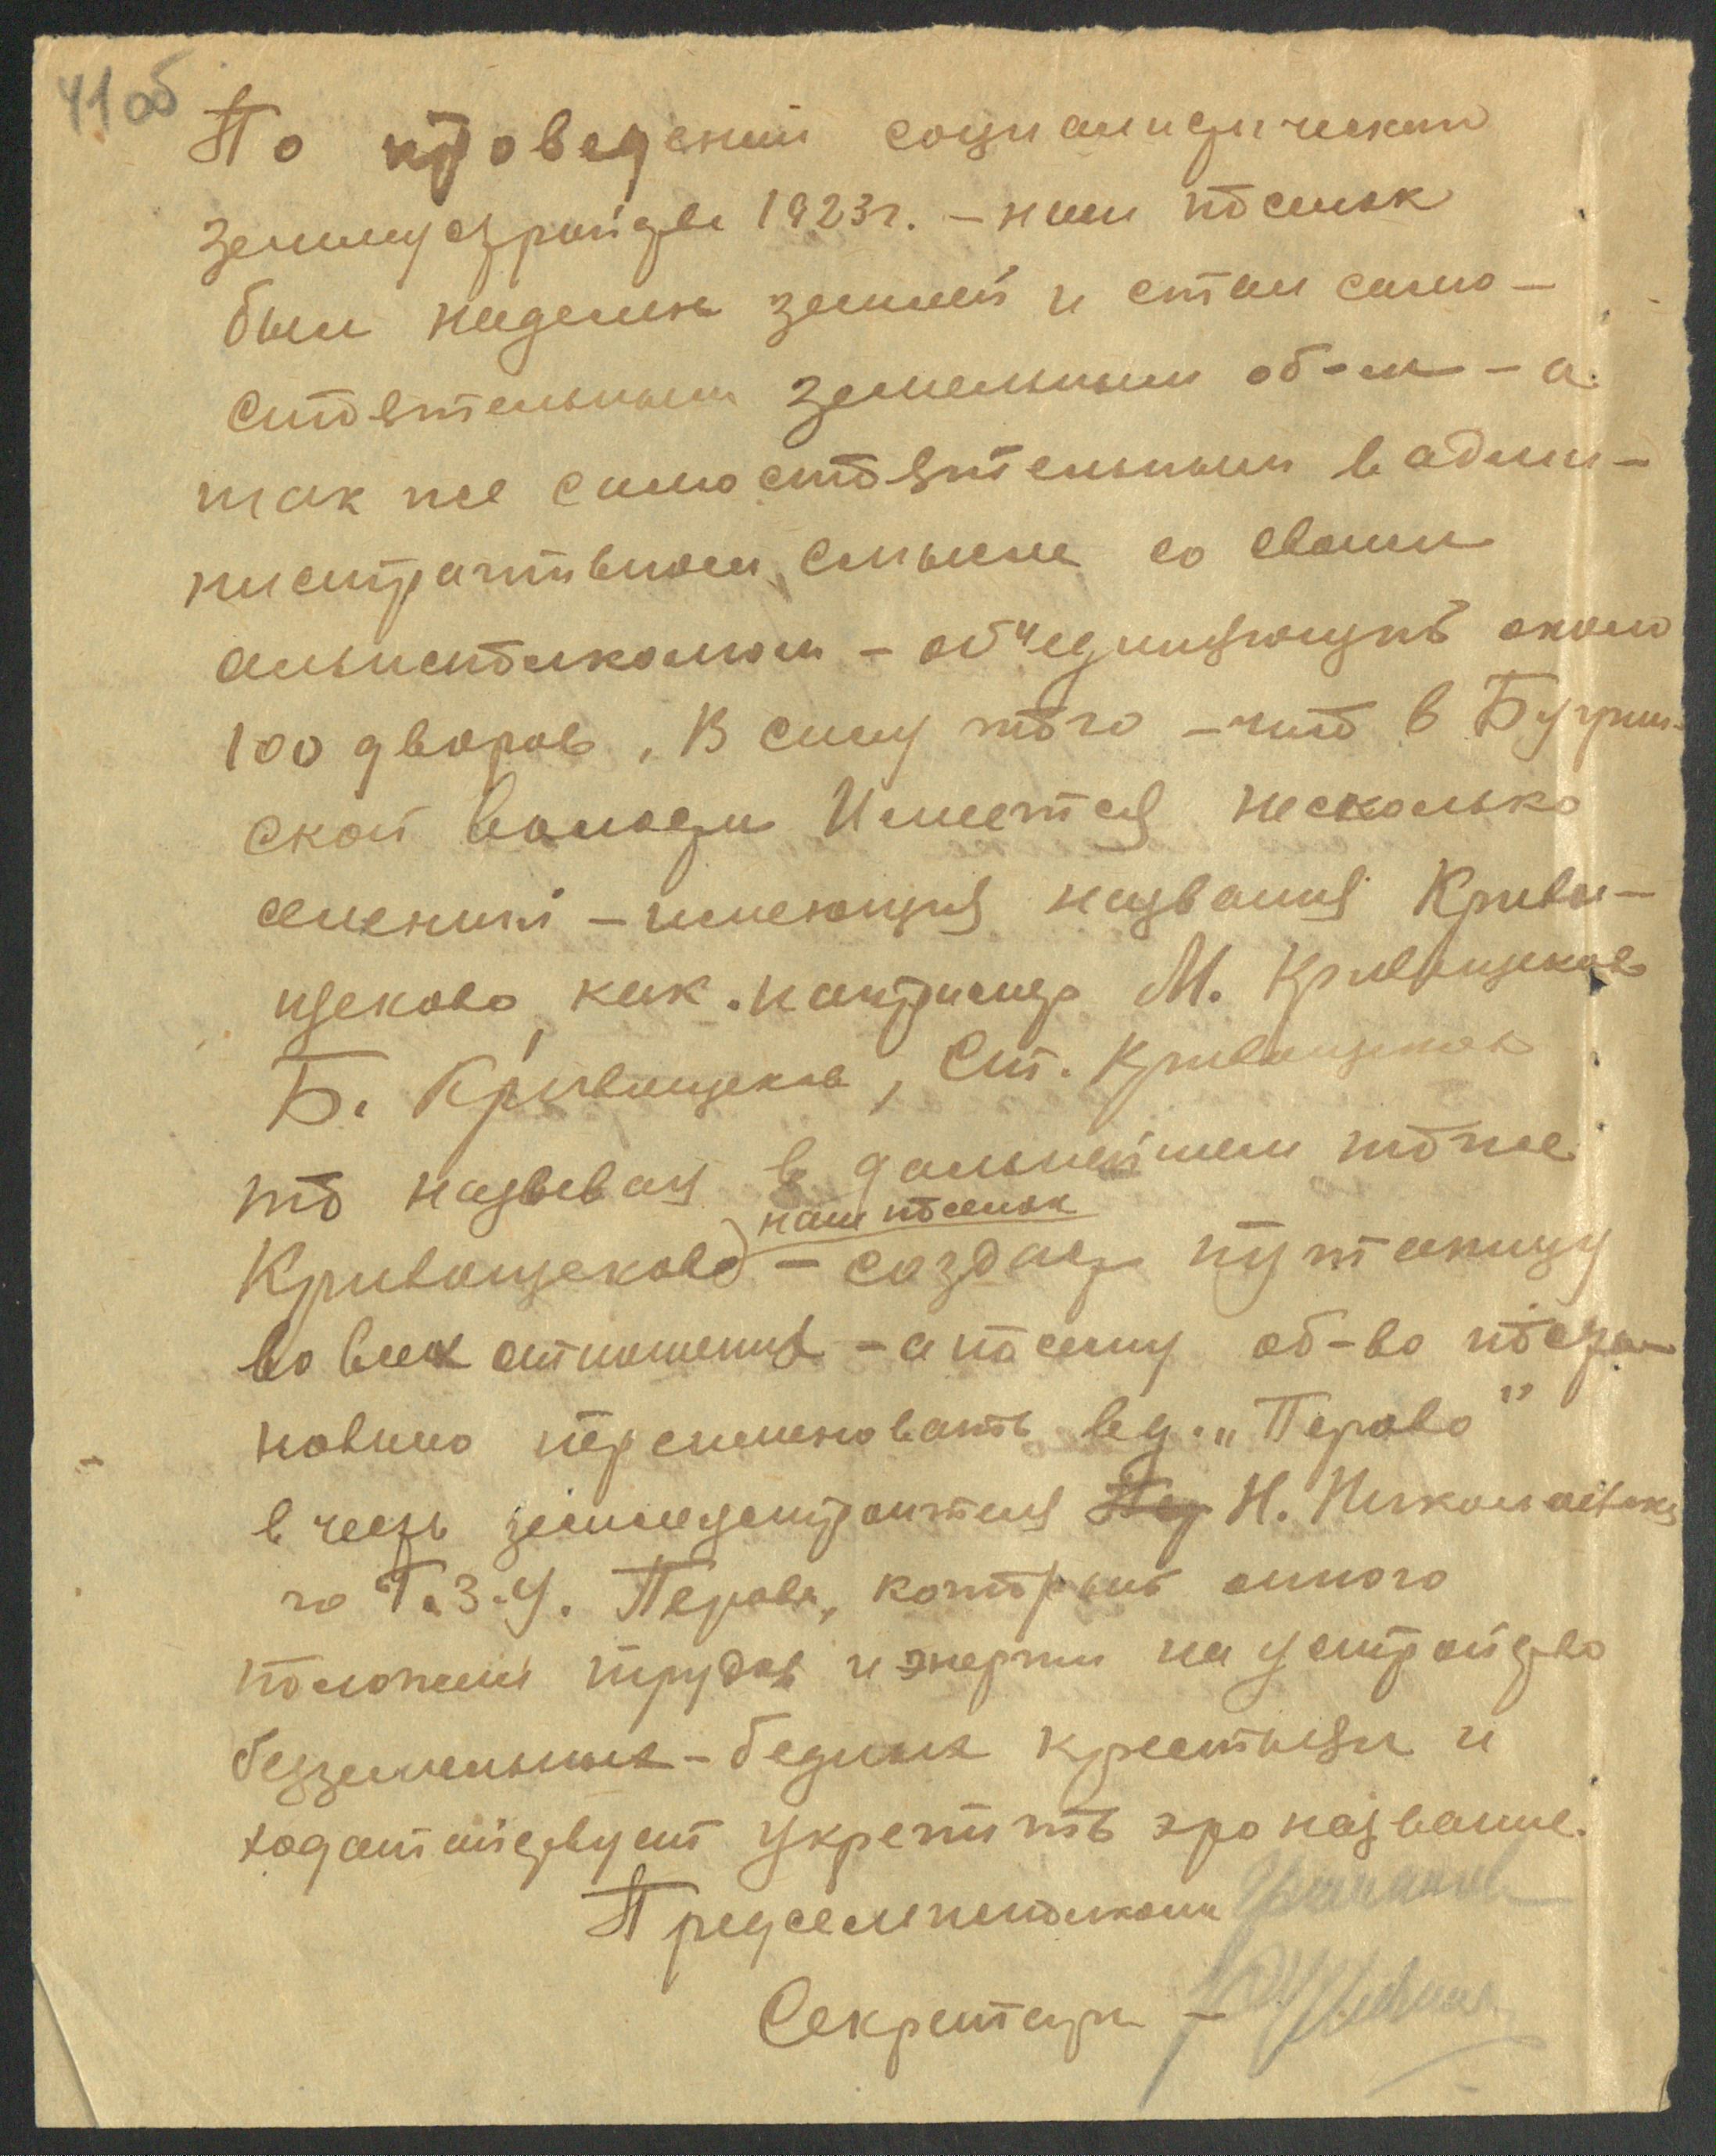 41об
По проведении социалистическаго
землеустройства 1923 г. – наш поселок
был наделен землей и стал само–
стоятельным земельным об-м – а
так же самостоятельным в адми–
нистративном смысле со своим
сельисполкомом – об"единяющий около
100 дворов, В силу того – что в Бугрин–
ской волости Имеется несколько
селений – имеющия названия Криво–
щеково, как. например М. Кривощеково
Б. Кривощеково, Ст. Кривощеково
то называя в дальнейшем тоже
наш поселок
Кривощеково – создает путаницу
во всех отношениях – а посему об-во поста–
новило переименовать в д. „Перово"
в честь землеустроителя Пер Н. Николаевско
го Г.З.У. Перова, который много
положил трудов и энергии на устройство
безземельных – бедных крестьян и
ходатайствует укрепить это название.
Предсельисполкома
Секретарь –